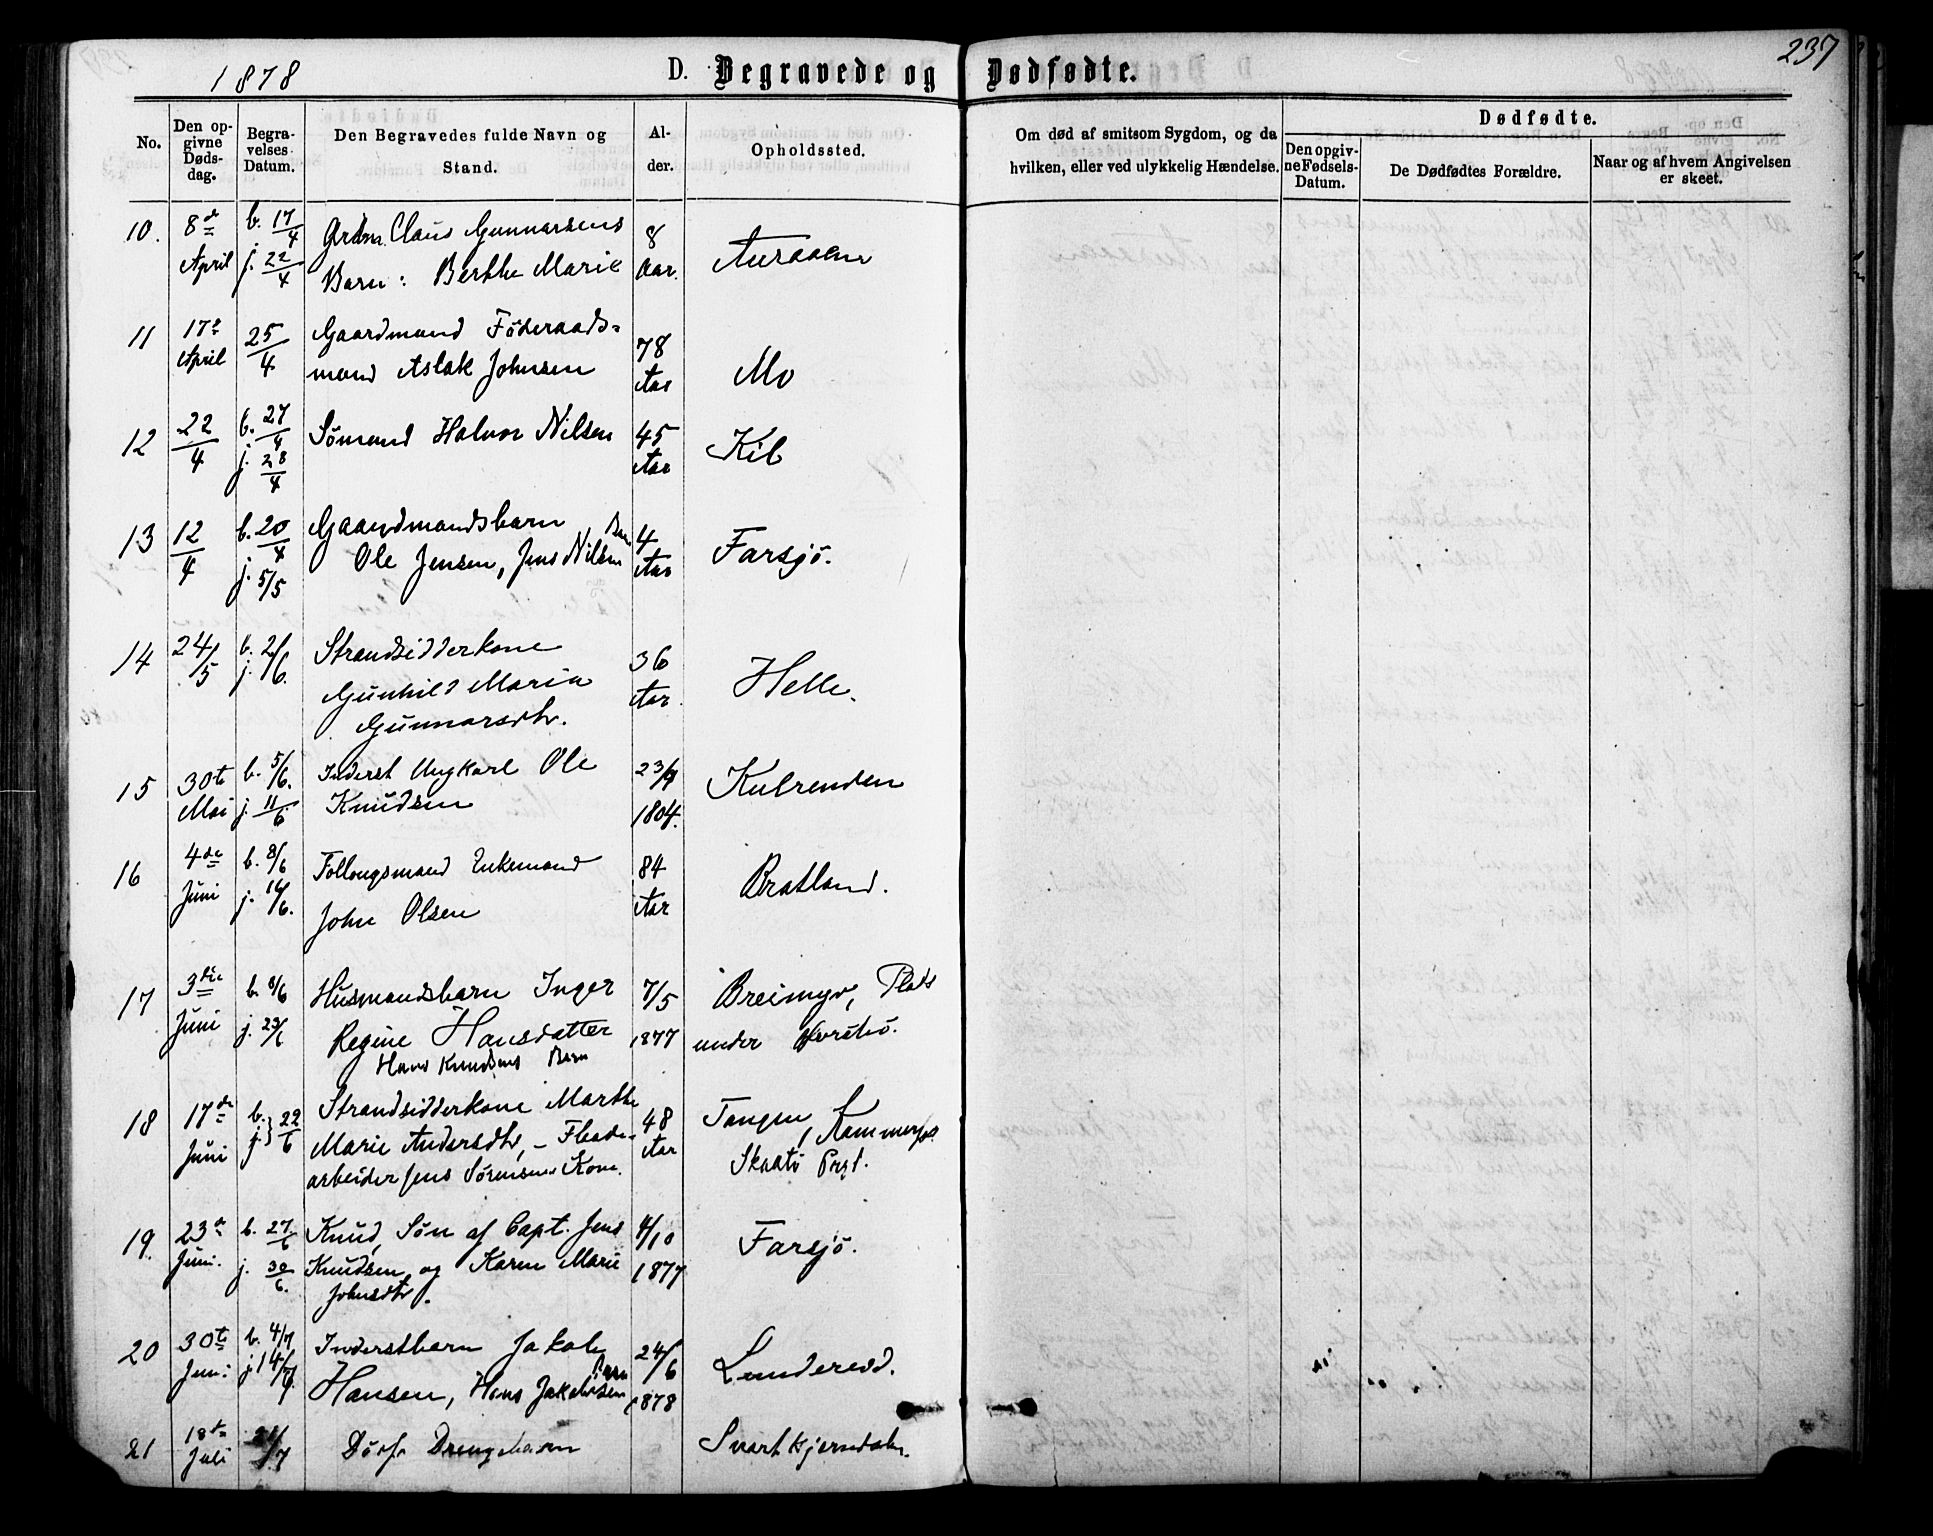 237
1878 D. Begravede og Dødfødte.
No.
Den opgivne Dødsdag.
Begravelses Datum.
Den Begravedes fulde Navn og Stand.
Alder.
Opholdssted.
Om død af smitsom Sygdom, og da hvilken, eller ved ulykkelig Hændelse.
Dødfødte.
Den opgivne Fødsels-Datum.
De Dødfødtes Forældre.
Naar og af hvem Angivelsen er skeet.
10. 8de April b. 17/4 j. 22/4 Grdm. Claus Gunnarsens 8 Aar. Auraaen
Barn: Berthe Marie
11 17de April 25/4 Gaardmand Föderaads= 78 Aar Mo
mand Aslak Johnsen
12 22/4 b. 27/4 j. 28/4 Sömand Halvor Nilsen 45 Aar Kil
13 12/4 b. 20/4 j. 5/5 Gaardmandsbarn 4 Aar Farsjö.
Ole Jensen, Jens Nilsen Barn
14 24/5 b. 2/6 j. /6. Strandsidderkone 36 Aar. Helle.
Gunhild Maria
Gunnarsdtr.
15 30te Mai b. 5/6. j. 11/6 Inderst Ungkarl Ole 1804. Kulrenden
Knudsen
16 4de Juni b. 8/6 j. 16/6. Follougsmand Enkemand 84 Aar Bratland.
John Olsen
17 3die Juni b. 8/6 j. 23/6 Husmandsbarn Inger 7/5 1877 Breimyr, Plads
Regine Hansdatter under
Hans Knudsens Barn
18 17de Juni b. j. } 22/6 Strandsidderkone Marthe 48 Aar Tangen,
Marie Andersdtr, – Skaatö Prgt.
arbeider Jens Sörensens Kone.
19. 23de Juni. b. 27/6 j. 30/6. Knud, Sön af Capt. Jens 4/10 1877 Farsjö.
Knudsen og Karen Marie
Johnsdtr.
20 30te Juni b. 4/7 j. 14/7 Inderstbarn Jakob 24/6 1878 Lundereid.
Hansen, Hans Jakobsens Barn
21 18de Juli 21/7 Dödf. Drengebarn Svartkjerndalen.